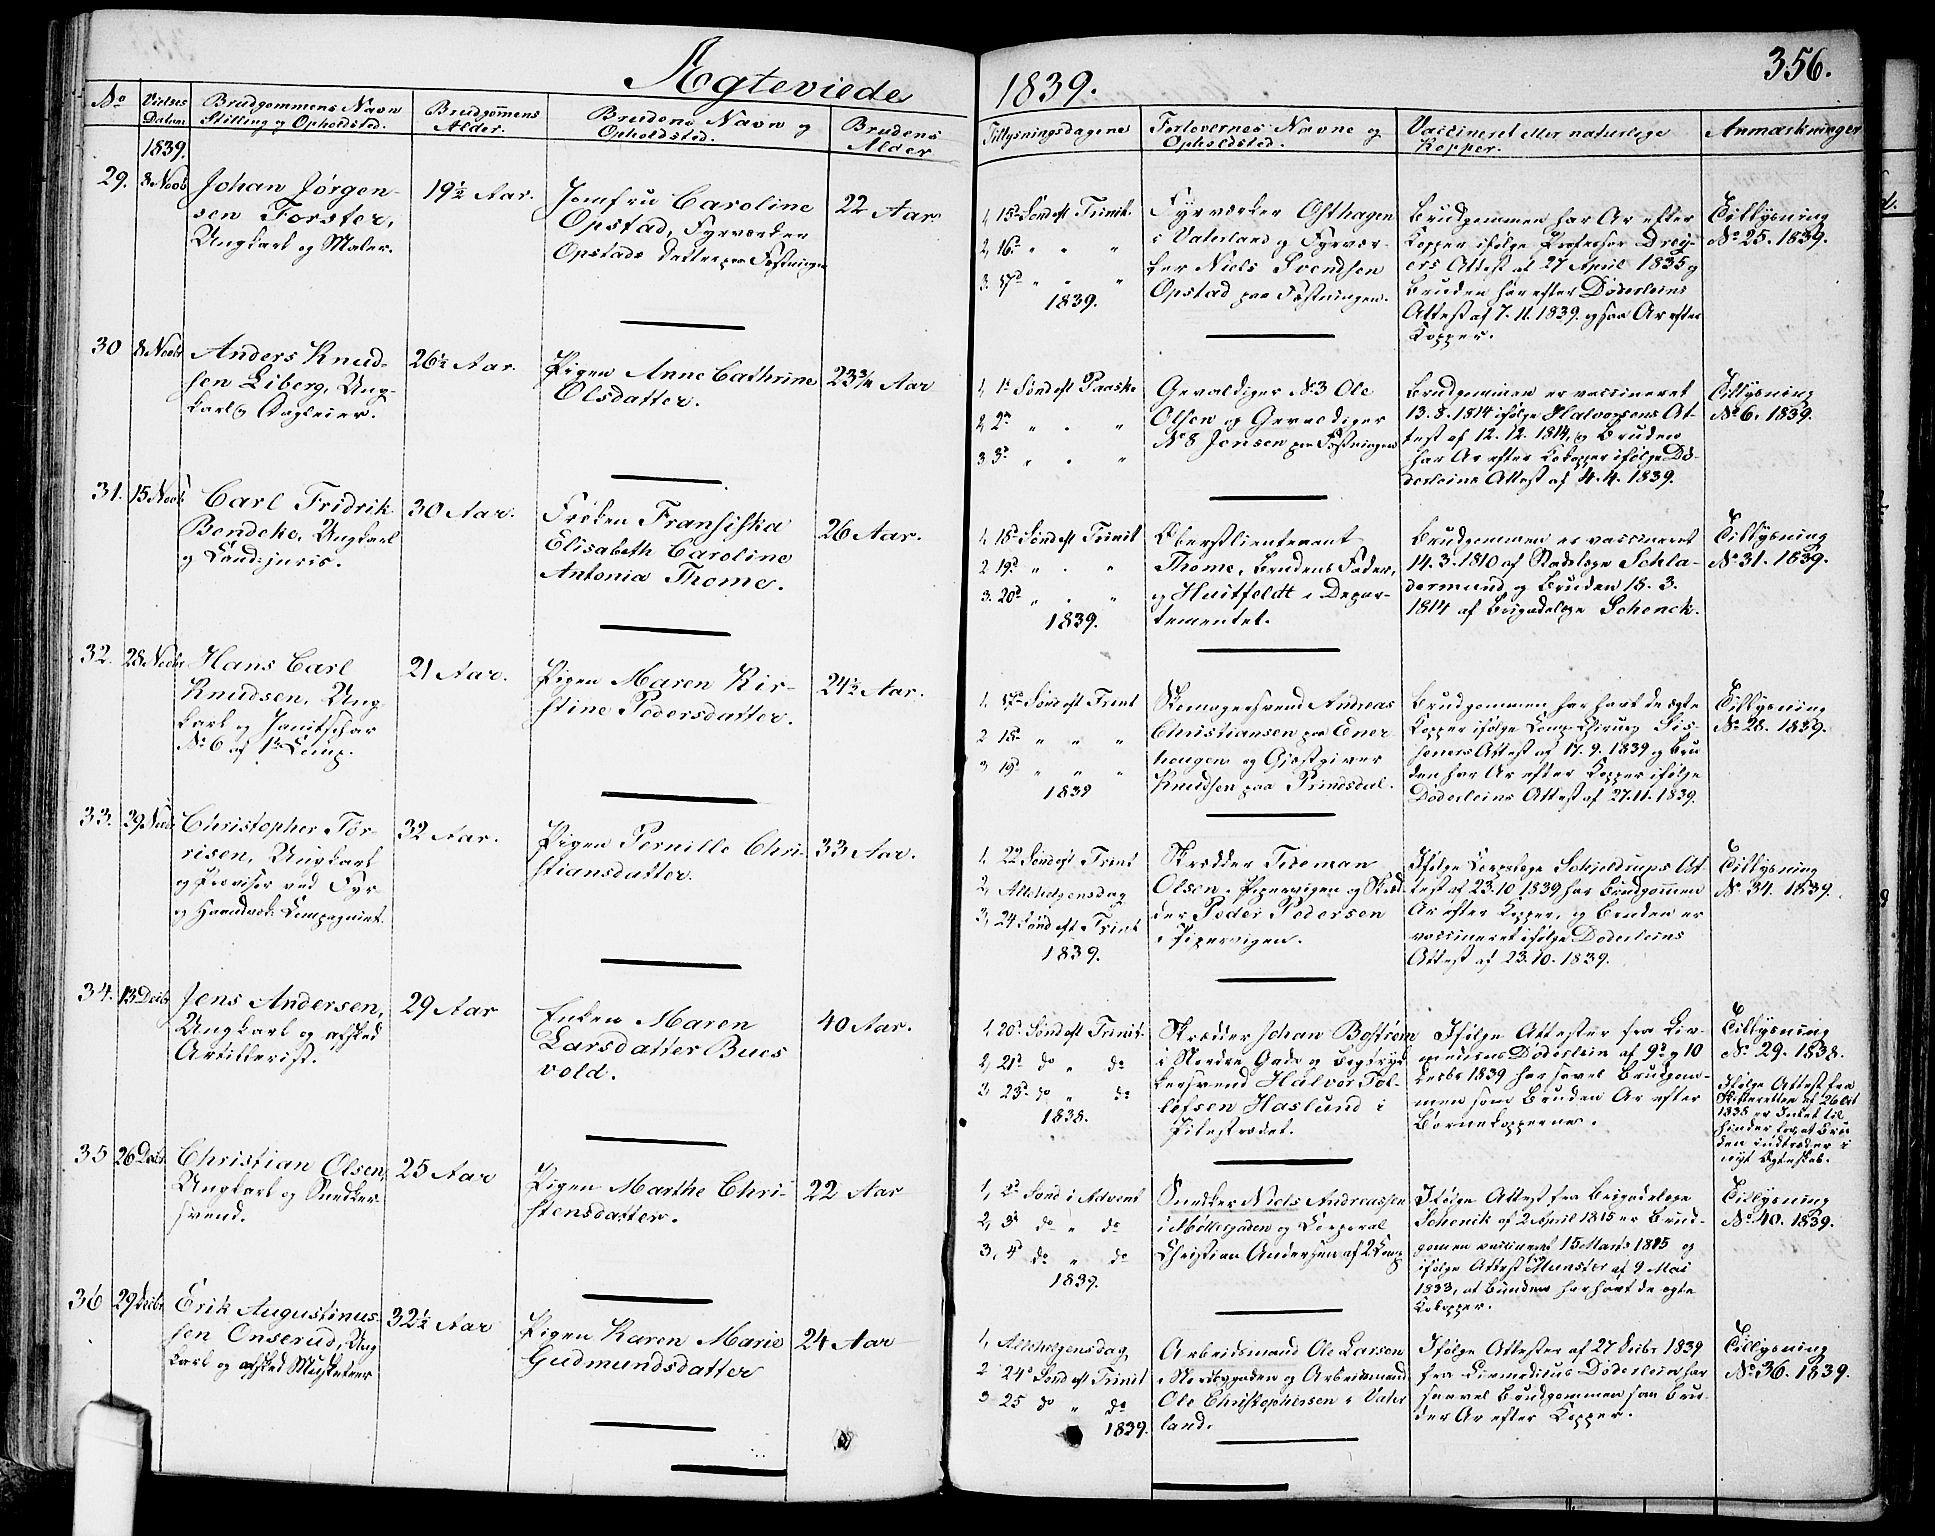 356.
Ægteviede
1839.
No
Vielses Datum
Brudgommens Navn
Stilling og Opholdsted.
Brudgomens
Alder.
Brudens Navn og
Opholdsted.
Brudens
Alder
Tillysningsdagene
Forlovernes Navne og
Opholdsted.
Vaccineret eller naturlige
Kopper.
Anmærkninger
1839.
29.
8 Novb
Johan Jørgen-
sen Forster,
Ungkarl og Maler.
19½ Aar.
Jomfru Caroline
Opstad, Fyrværker
Opstads Datter paa Fæstningen
22 Aar
1, 15d Sond eft Trinit.
2, 16d " " "
3. 17d " " "
1839.
Fyrværker Osthagen
i Vaterland og Fyrvær-
ker Niels Svendsen
Opstad paa Fæstningen.
Brudgommen har Ar efter
Kopper ifølge Professor Drey-
ers Attest af 27 April 1835 og
Bruden har efter Döderleins
Attest af 7. 11. 1839. ogsaa Ar efter
Kopper.
Tillysning
No 25. 1839.
30
8 Novbr
Anders Knud-
sen Liberg, Ung-
karl og Dagleier.
26½ Aar.
Pigen Anne Cathrine
Olsdatter.
23¾ Aar
1, 1s Sond eft Paaske
2, 2n " " "
3 3d " " "
Gevaldiger No 3 Ole
Olsen og Gevaldiger
No 8 Jensen paa Fæstningen
Brudgommen er vaccineret
13. 8. 1814 ifølge Halvorsens At-
test af 12. 12. 1814, og Bruden
har Ar efter Kokopper ifølge Dö-
derleins Attest af 4. 4. 1839.
Tillysning
No 6. 1839.
31.
15 Novb
Carl Fridrik
Bendeke, Ungkarl
og Cand: juris.
30 Aar.
Frøken Fransiska
Elisabeth Caroline
Antonia Thome.
26 Aar.
1, 18d Sønd eft Trinit
2 19d " " "
3. 20d " " "
1839.
Oberstlieutenant
Thome, Brudens Fader,
og Huitfeldt i Depar-
tementet.
Brudgommen er vaccineret
14. 3. 1810 af Stadslæge Schla-
dermund og Bruden 18. 3.
1814 af Brigadelæge Schenck.
Tillysning
No 31. 1839.
32.
28 Novbr
Hans Carl
Knudsen, Ung-
karl og Janitschar
No 6 af 1ste Comp.
21 Aar.
Pigen Maren Kir-
stine Pedersdatter.
24½ Aar.
1. 17d Sønd eft Trent
2 18d " " "
3 19d " " "
1839
Skomagersvend Andreas
Christiansen paa Ener-
hougen og Gjæstgiver
Knudsen paa Prindsdal.
Brudgommen har havt de ægte
Kopper ifølge Comp: Chirurg
Attest af 17. 9. 1839 og Bru-
den har Ar efter Kopper ifølge
Döderleins Attest af 27. 11. 1839.
Tillysning
No 28. 1839.
33.
29 Novb
Christopher Tor-
risen, Ungkarl
og Proviser ved Fyr
og Haandværks Compagniet.
32 Aar.
Pigen Pernille Chri-
stiansdatter.
33 Aar.
1, 22 Sond eft Trint
2, Allehelgensdag
3, 24 Sønd eft Trint
1839.
Skrædder Tideman
Olsen i Pipervigen og Skræd-
der Peder Pedersen
i Pipervigen.
Ifølge Corpslæge Schjeldrups At-
test af 23. 10 1839 har Brudgommen
Ar efter Kopper, og Bruden er
vaccineret ifølge Döderleins
Attest af 23. 10. 1839.
Tillysning
No. 34. 1839.
34.
13 Decbr
Jens Andersen,
Ungkarl og afsked
Artillerist.
29 Aar
Enken Maren
Larsdatter Bues
vold.
40 Aar.
1, 20d Sond eft Trinit.
2, 21d do " do
3, 23d do " do
1838.
Skrædder Johan Boström
i Nordre Gade og Bogtryk-
kersvend Halvor Tol-
lefsen Haslund i
Pilestrædet.
Ifølge Attester fra Liv-
medicus Döderlein af 9d og 10
Decbr 1839 har saavel Brudgom-
men som Bruden Ar efter
Børnekopperne.
Tillysning
No. 29. 1838.
Ifølge Attest fra
Skifteretten af 26 Oct
1838 er Intet til
Hinder for, at Bru-
den indtræder i
nyt Ægteskab.
35
26 Decbr
Christian Olsen,
Ungkarl og Snedker
svend.
25 Aar
Pigen Marthe Chri-
stensdatter.
22 Aar
1, 2d Sond i Advent
2, 3d do " do
3, 4d do " do
1839.
Snedker Niels Andreassen
i Møllergaden og Corporal
Christian Andersen af 2 Comp
Ifølge Attest fra Brigadelæge
Schenck af 2 April 1815 er Brud-
gomen vaccineret 15 Marts 1815 og
ifølge Attest fra Munster af 9 Mai
1833, at Bruden har havt de ægte
Kokopper.
Tillysning
No. 40. 1839.
36
29 Decbr
Erik Augustinus-
sen Onserud, Ung
karl og afsked Musketeer
32½ Aar
Pigen Karen Marie
Gudmundsdatter
24 Aar
1, Allehelgensdag,
2 24d Sond eft Trinit
3 25 do " do
1839.
Arbeidsmand Ole Larsen
i Nordbygaden og Arbeidsmand
Ole Christophersen i Vater
land.
Ifølge Attester af 27 Decbr 1839
fra Livmedicus Döderlein har
saavel Brudgommen som Bru-
den Ar efter Kopper.
Tillysning
No. 36. 1839.